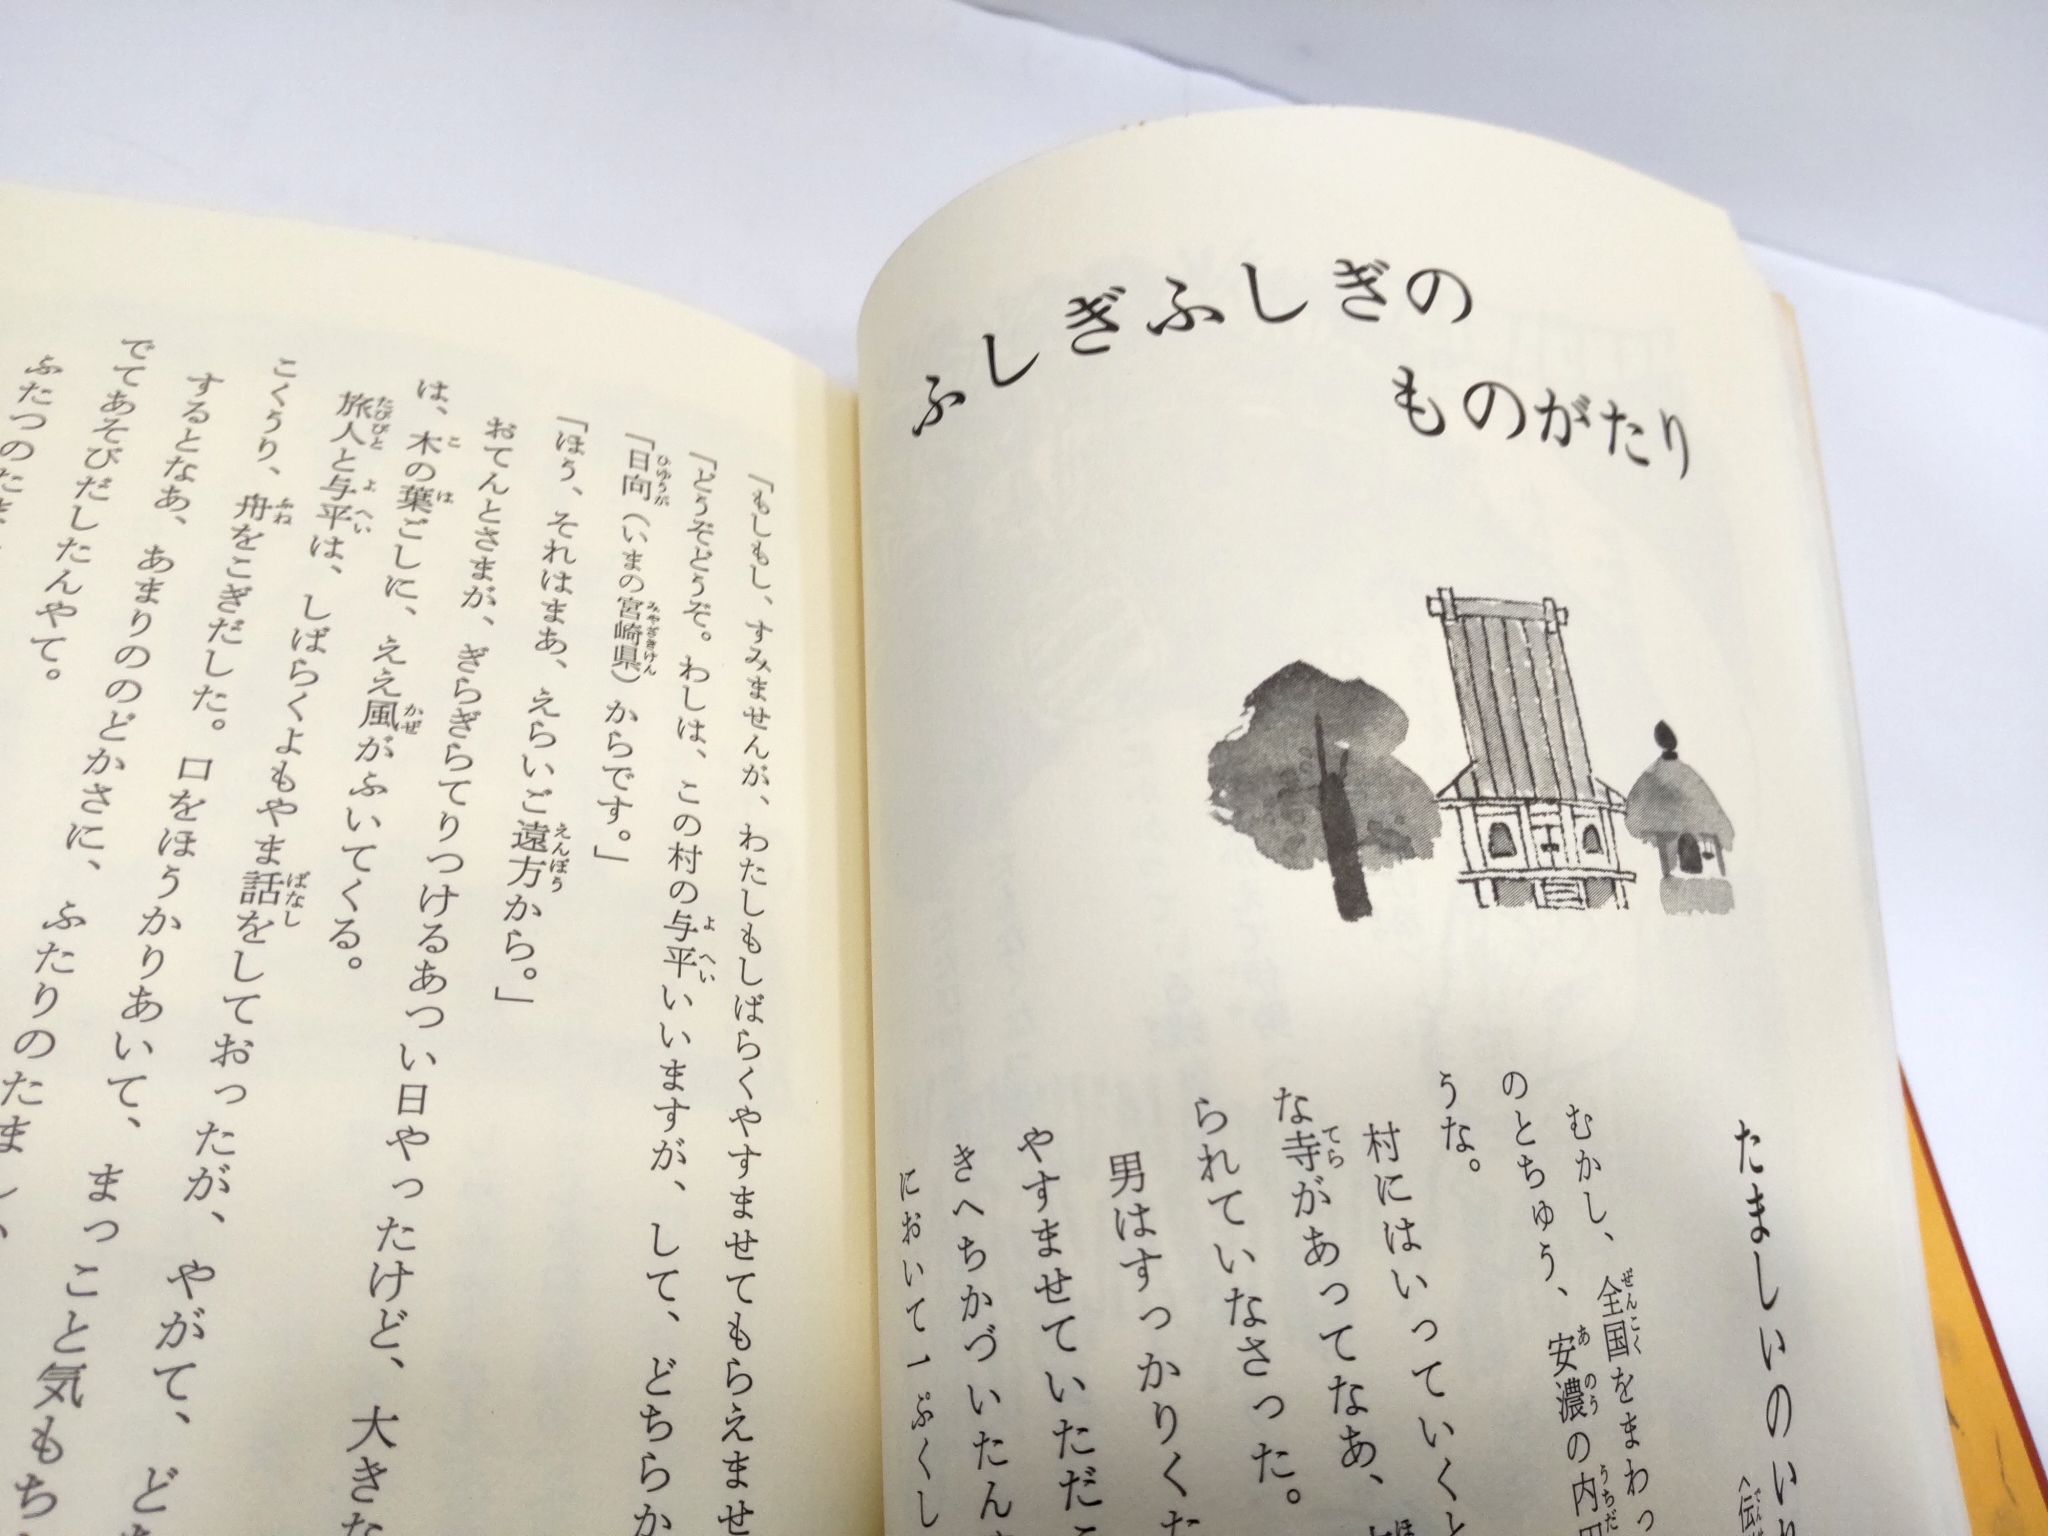 ふしぎふしぎの
ものがたり
たましいのい
〈伝
むかし、全国をまわっ
のとちゅう、安濃の内
うな。
村にはいっていくと
な寺があってなあ、
られていなさった。
男はすっかりくた
やすませていただこ
きへちかづいたん
において一ぷくし
「もしもし、すみませんが、わたしもしばらくやすませてもらえませ
「どうぞどうぞ。わしは、この村の与平いいますが、して、どちらか
「日向（いまの宮崎県）からです。」
「ほう、それはまあ、えらいご遠方から。」
おてんとさまが、ぎらぎらてりつけるあつい日やったけど、大きな
は、木の葉ごしに、ええ風がふいてくる。
旅人と与平は、しばらくよもやま話をしておったが、やがて、ど
こくうり、舟をこぎだした。口をほうかりあいて、まっこと気もち
するとなあ、あまりののどかさに、ふたりのたまし
でてあそびだしたんやて。
ふたつのた